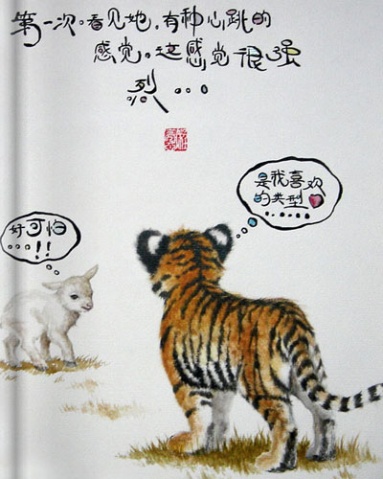 第一次。看见她，有种心跳的
感觉。这感觉很强
烈...
是我喜欢
的类型
......
好可怕
...!!